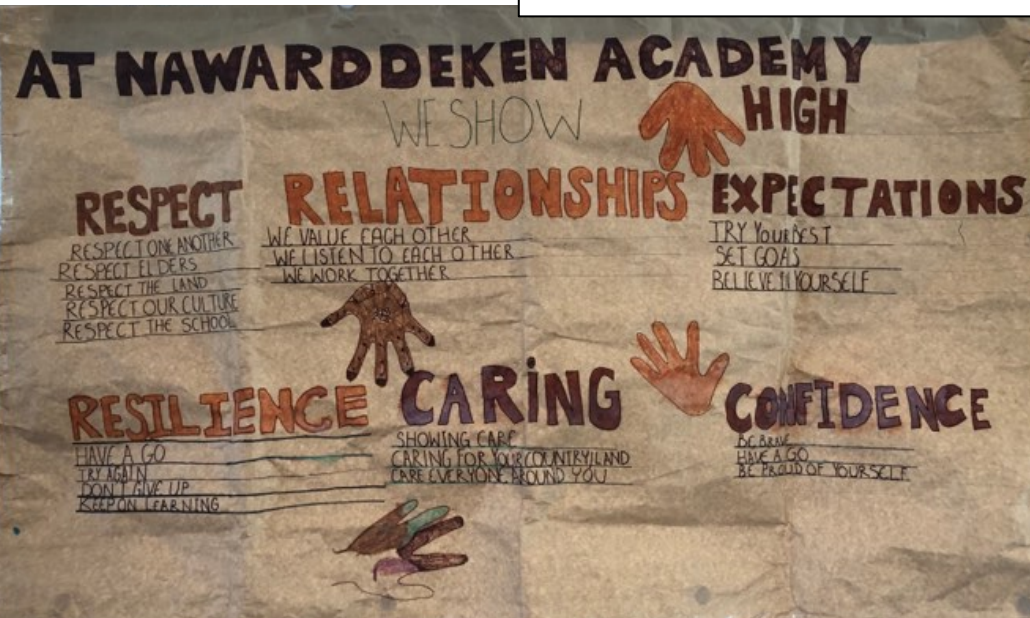 AT NAWARDDEKEN ACADEMY
WE SHOW
RESPECT
RESPECT ONE ANOTHER
RESPECT ELDERS
RESPECT THE LAND
RESPECT OUR CULTURE
RESPECT THE SCHOOL
RELATIONSHIPS
WE VALUE EACH OTHER
WE LISTEN TO EACH OTHER
WE WORK TOGETHER
HIGH
EXPECTATIONS
TRY YOUR BEST
SET GOAS
BELIEVE IN YOURSELF
RESILIENCE
HAVE A GO
TRY AGAIN
DON'T GIVE UP
KEEP ON LEARNING
CARING
SHOWING CARE
CARING FOR YOUR COUNTRY/LAND
CARE EVERYONE AROUND YOU
CONFIDENCE
BE BRAVE
HAVE A GO
BE PROUD OF YOURSELF